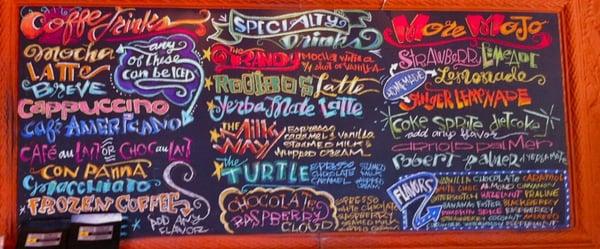 Coffee Drinks
Mocha
Latte
Breve
Cappuccino
Café Americano
Café au Lait or Choc au Lait
Con Panna
Macchiato
Frozen Coffee
Add any flavor
any of these can be iced
Specialty Drinks
The Randy Mocha with a ½ shot of vanilla
Rooibos Latte
Yerba Mate Latte
The Milky Way Espresso
Caramel & Vanilla
Steamed Milk &
Whipped Cream
The Turtle Espresso
Chocolate
Caramel
Steamed Milk
Whipped Cream
Chocolate
Raspberry
Cloud
More Mojo
Strawberry Limeade
Homemade Lemonade
Ginger Lemonade
Coke Sprite diet coke
add any flavor
arnold palmer
Robert palmer
Flavors
Vanilla Chocolate Caramel
White Choc Almond Cinnamon
Butterscotch Hazelnut Praline
Bananas Foster Blackberry
Pumpkin Spice Raspberry
Strawberry Coconut
Peppermint